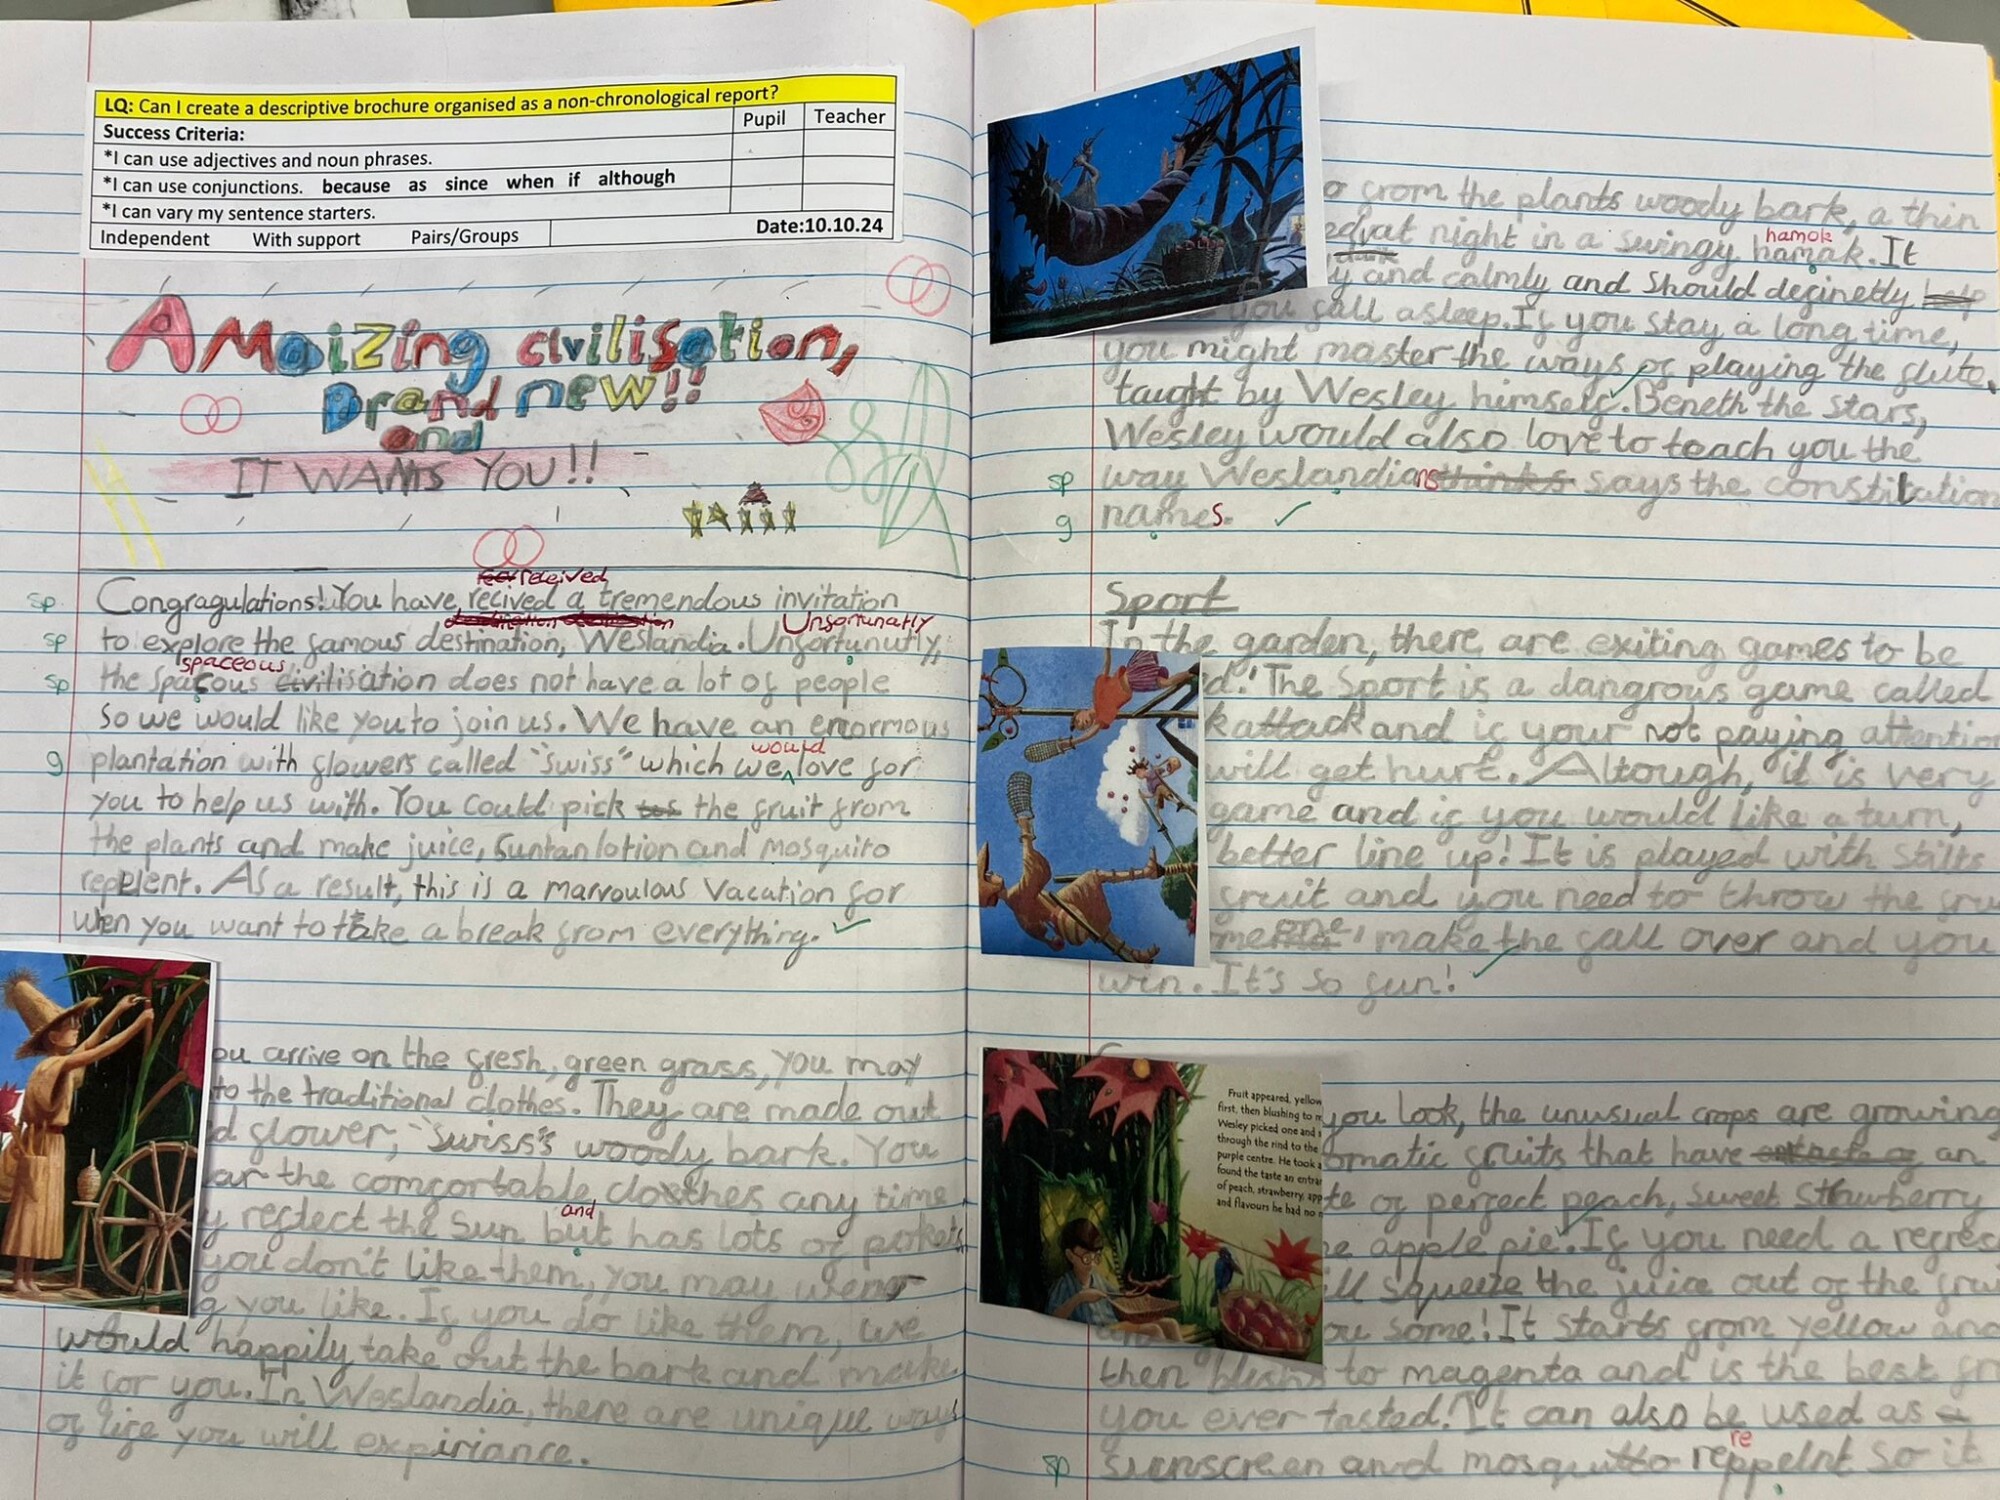 LQ: Can I create a descriptive brochure organised as a non-chronological report?
Success Criteria:
Pupil
Teacher
*I can use adjectives and noun phrases.
*I can use conjunctions. because as since when if although
*I can vary my sentence starters.
Independent With support Pairs/Groups
Date:10.10.24
Amaizing civilisation,
Brand new!!
and
IT WANTS YOU!!
received
sp Congragulations! You have recived a tremendous invitation
Unfortunatly
sp to explore the famous destination, Weslandia. Unfortunutly,
spaceous
sp the spacous civilisation does not have a lot of people
so we would like you to join us. We have an enormous
would
g plantation with flowers called "swiss" which we love for
you to help us with. You could pick the fruit from
the plants and make juice, suntan lotion and mosquito
repplent. As a result, this is a marvoulous vacation for
when you want to take a break from everything.
ou arrive on the fresh, green grass, you may
to the traditional clothes. They are made out
d flower, "swiss"s woody bark. You
ar the comfortable clothes any time
and
y reflect the sun but has lots of pokets
you don't like them, you may wear
g you like. If you do like them, we
would happily take out the bark and make
it for you. In Weslandia, there are unique ways
of life you will expiriance.
o from the plants woody bark, a thin
hamok
at night in a swingy hamak. It
y and calmly and should definetly help
you fall asleep. If you stay a long time,
you might master the ways of playing the flute,
taught by Wesley himself. Beneth the stars,
Wesley would also love to teach you the
sp way Weslandians thinks says the constilation
g names.
Sport
In the garden, there are exiting games to be
d. The sport is a dangrous game called
k attack and if your not paying attention
will get hurt. Altough, it is very
game and if you would like a turn,
better line up! It is played with stilts
fruit and you need to throw the fru
one, make the fall over and you
win. It's so fun!
Fruit appeared, yellow
first, then blushing to m
Wesley picked one and s
through the rind to the
purple centre. He took a
found the taste an entran
of peach, strawberry, app
and flavours he had no n
you look, the unusual crops are growing
omatic fruits that have an
te of perfect peach, sweet strawberry
e apple pie. If you need a refres
ll squeeze the juice out of the frui
ou some! It starts from yellow and
then blush to magenta and is the best fr
you ever tasted. It can also be used as a
re
sp sunscreen and mosqutto reppelnt so it